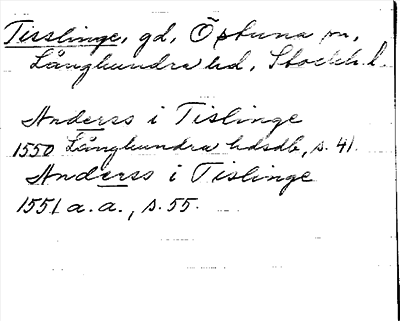 Tisslinge, gd, Östuna sn,
Långhundra hd, Stockh. l.
Anderss i Tislinge
1550 Långhundra hdsdb, s. 41.
Anderss i Tislinge
1551 a. a., s. 55.